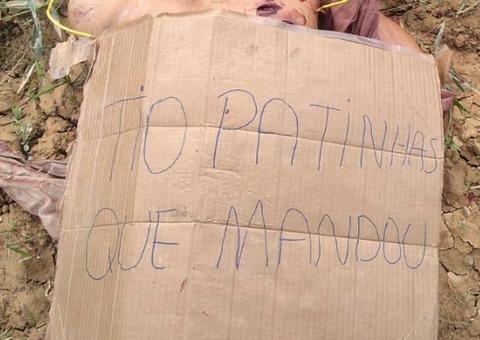 TIO PATINHAS
QUE MANDOU